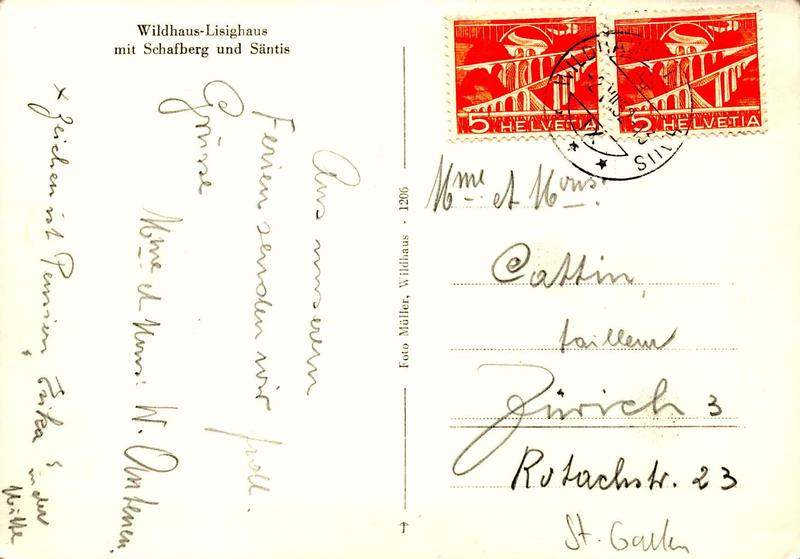 Wildhaus-Lisighaus
mit Schafberg und Säntis
Aus unserem
Ferien senden wir frdl.
Grüsse
Mme et Mons: W. Antenen.
x Zeichen ist Pension Erika
in der
Mitte
Foto Müller, Wildhaus - 1206
5 HELVETIA
5 HELVETIA
WILDHAUS
Mme et Mons:
Cattin,
tailleur
Zürich 3
Rotachstr. 23
St. Gallen